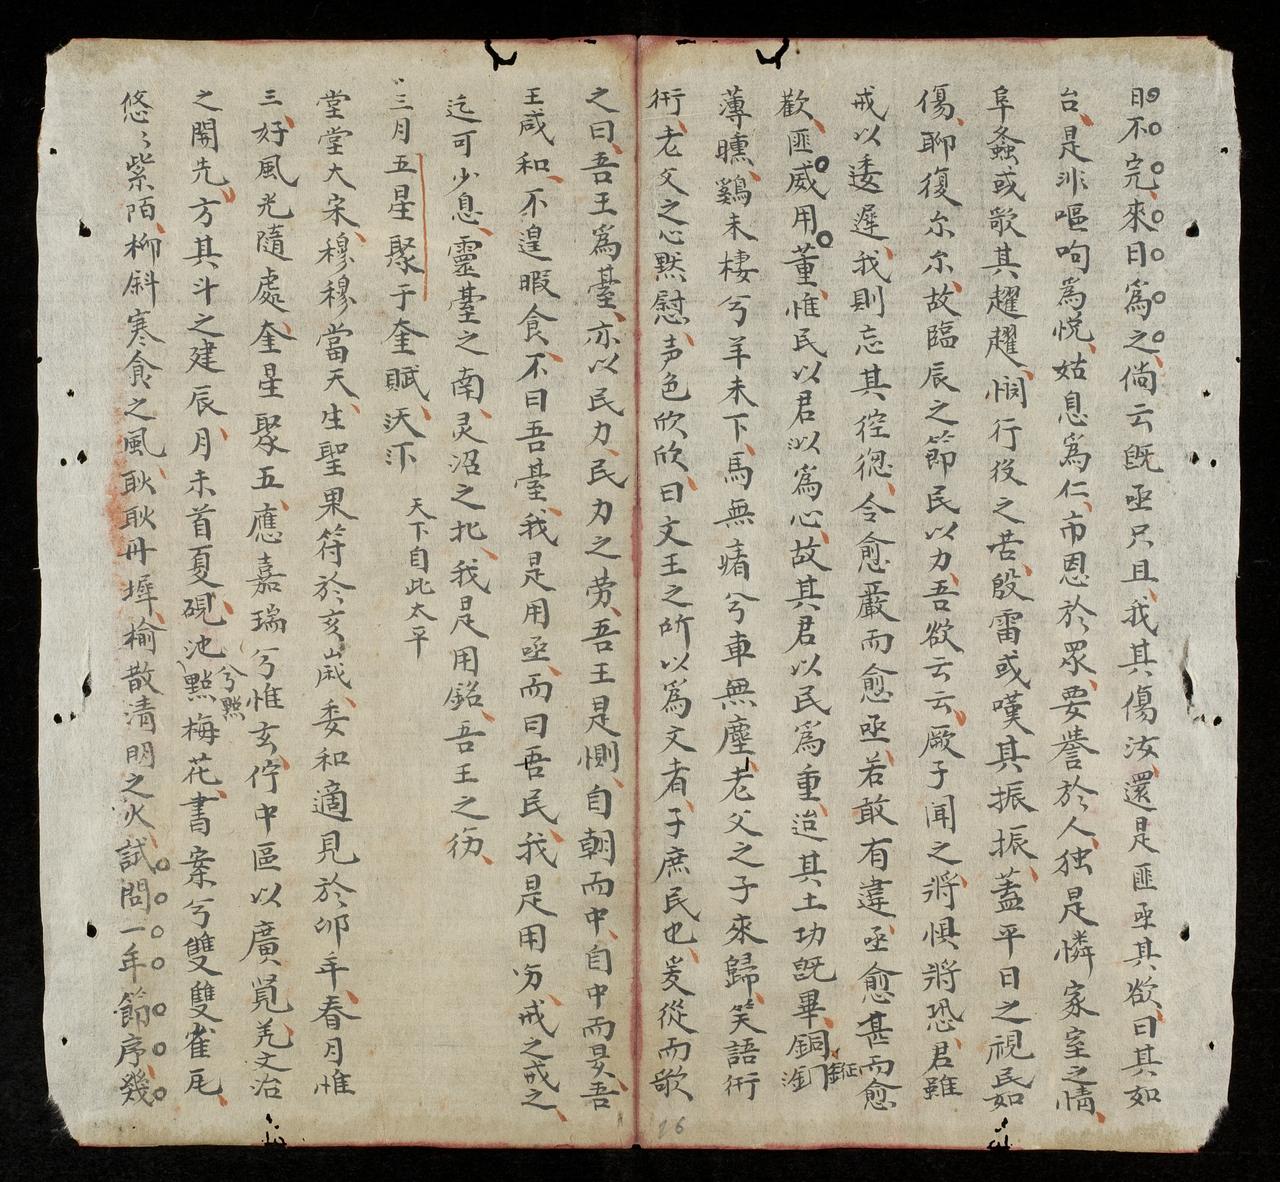 日不完、來日爲之、倘云旣亟只且、我其傷汝、還是匪亟其欲、曰其如
台、是非嘔呴爲悅、姑息爲仁、市恩於眾、要譽於人、独是憐家室之情、
阜螽或歌其趯趯、惘行役之苦、殷雷或嘆其振振、蓋平日之視民如
傷、聊復尔尔、故臨辰之節民以力、吾欲云云、厥子闻之將惧將恐、君雖
戒以逶遲、我則忘其倥偬、令愈嚴而愈亟、若敢有違、亟愈甚而愈
歡、匪威用董、惟民以君以爲心、故其君以民爲重、迨其土功旣畢、銅
鉦
薄曛、鷄未棲兮羊未下、馬無瘏兮車無塵、老父之子來歸、笑語衎
衎、老父之心黙慰、声色欣欣、曰文王之所以爲文者、子庶民也、爰從而歌
之曰、吾王爲臺、亦以民力、民力之劳、吾王是惻、自朝而中、自中而昃、吾
王咸和、不遑暇食、不曰吾臺、我是用亟、而曰吾民、我是用勿、戒之戒之、
迄可少息、靈臺之南、灵沼之北、我是用銘、吾王之
三月五星聚于奎賦、
天下自此太平
堂堂大宋、穆穆當天、生聖果符於亥歲、委和適見於卯年、春月惟
三、好風光隨處、奎星聚五、應嘉瑞兮惟玄、佇中區以廣覧、羌文治
之開先、方其斗之建辰、月未首夏、硯池點梅花、書案兮雙雙雀瓦、
兮點
悠〻紫陌、柳斜寒食之風、耿耿丹墀、榆散清明之火、試問一年節序、幾
26